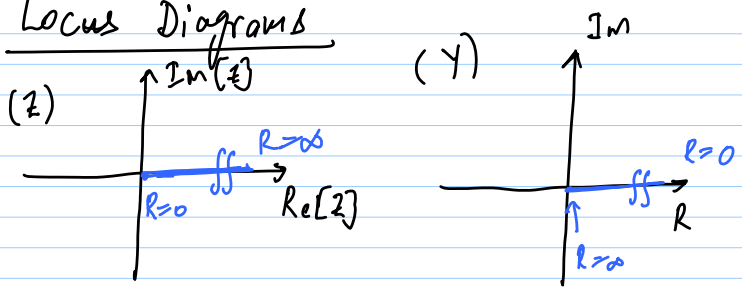 Locus Diagrams
Im[Z]
(Z)
R=∞
R=0
Re[Z]
Im
(Y)
R=0
R
R=∞